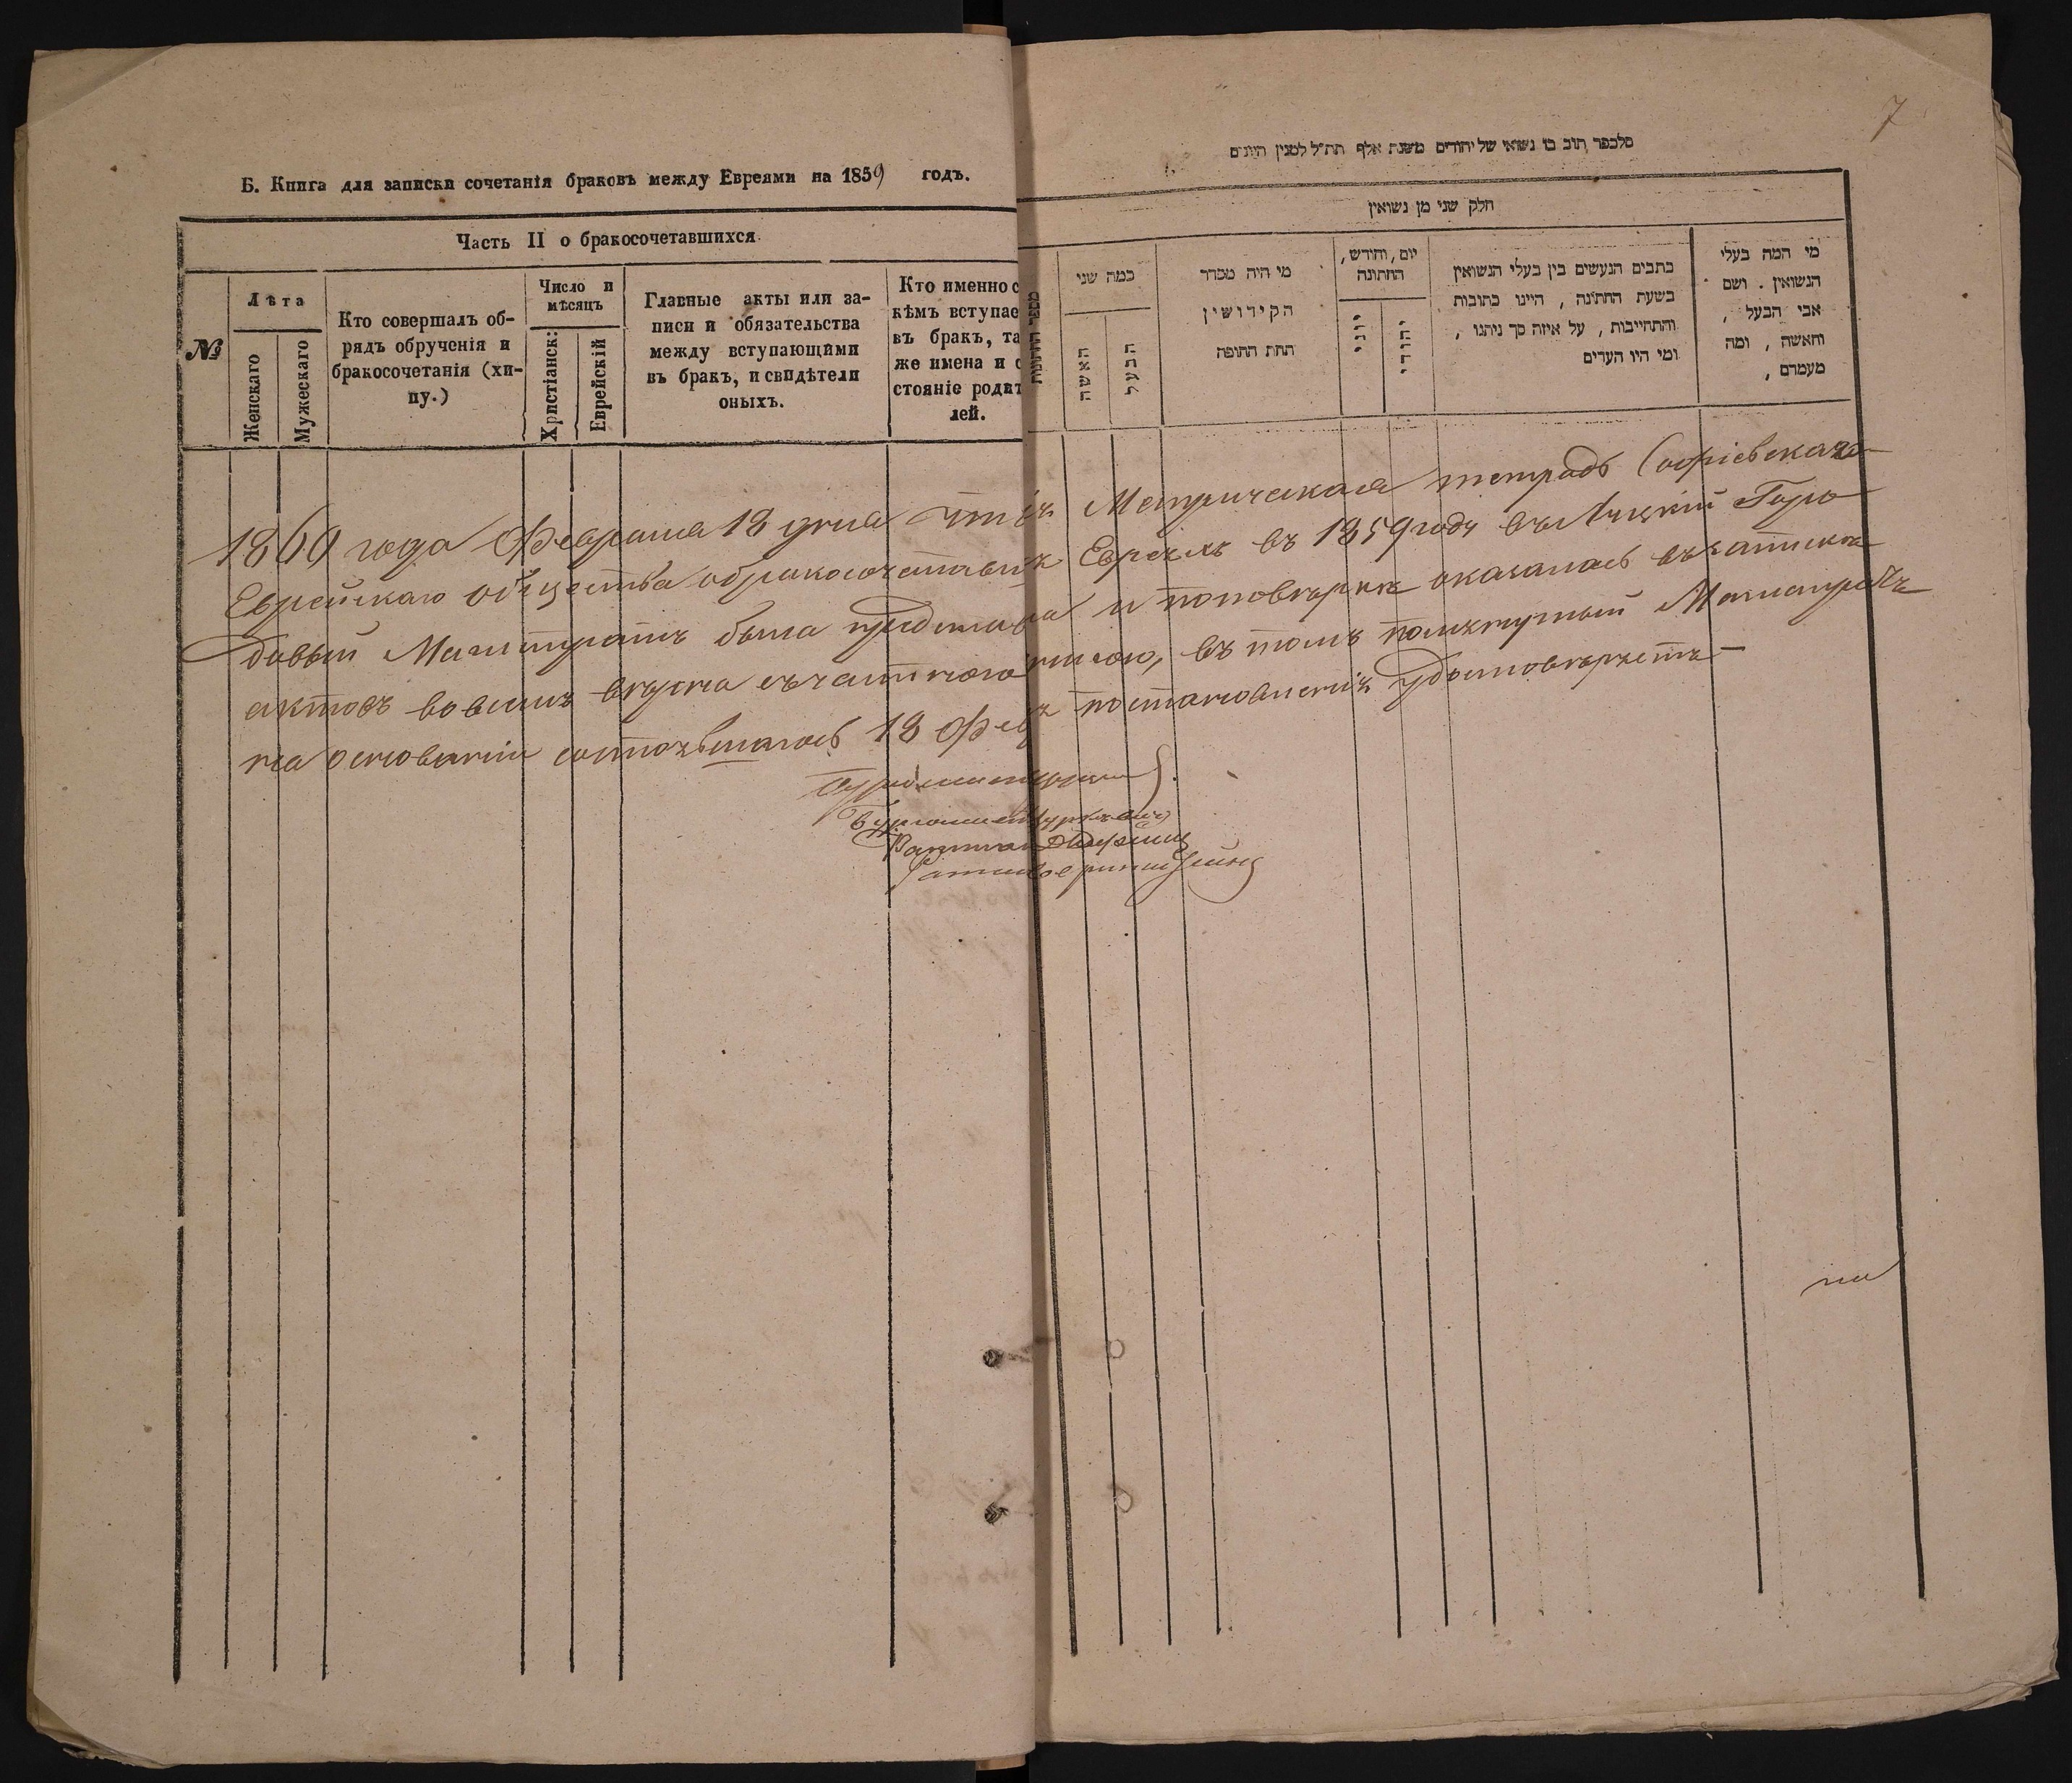 7
Б. Книга для записки сочетанія браковъ между Евреями на 1859 годъ.
Часть II о бракосочетавшихся
№
Лѣта
Женскаго
Мужескаго
Кто совершалъ об-
рядъ обрученія и
бракосочетанія (хи-
пу.)
Число и
мѣсяцъ
Христіанск:
Еврейскій
Главные акты или за-
писи и обязательства
между вступающими
въ бракъ, и свидѣтели
оныхъ.
Кто именно с
кѣмъ вступае
въ бракъ, та
же имена и с
стояніе родит
лей.
של יהודים משנת אלף תת״ל למנין היונים
חלק שני מן נשואין
כמה שני
האשה
הבעל
מי היה מסדר
הקידושין
תחת החופה
יום, וחודש,
החתונה
יוני
יהודי
כתבים הנעשים בין בעלי הנשואין
בשעת החתונה, היינו כתובות
והתחייבות, על איזה סך ניתנו,
ומי היו העדים
מי המה בעלי
הנשואין. ושם
אבי הבעל,
והאשה, ומה
מעמדם,
1860 года Февраля 18 дня Метрическая тетрадь Софіевскаго
Еврейскаго общества о бракосочетавшихся Евреяхъ въ 1859 году въ Луцкій Горо
довый Магистратъ была и по повѣркѣ оказалась въ запискѣ
актовъ во всемъ вѣрна въ томъ Магистратъ
на основаніи состоявшагося 18 постановленія удостовѣряетъ